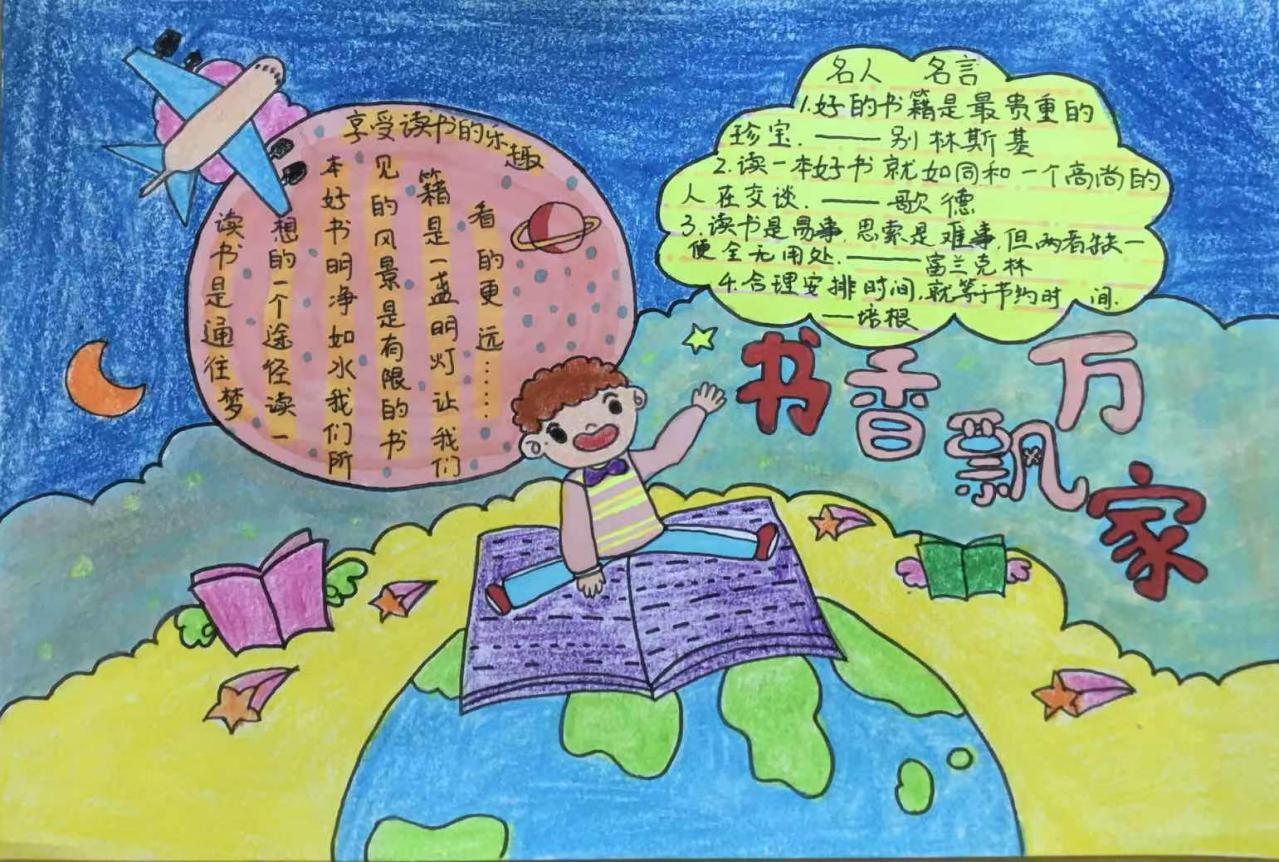 享受读书的乐趣
读书是通往梦
想的一个途径读一
本好书明净如水我们所
见的风景是有限的书
籍是一盏明灯让我们
看的更远……
名人 名言
1.好的书籍是最贵重的
珍宝.——别林斯基
2.读一本好书就如同和一个高尚的
人在交谈.——歌德
3.读书是易事,思索是难事,但两者缺一
便全无用处.——富兰克林
4.合理安排时间,就等于节约时 间.
——培根
书香飘万家